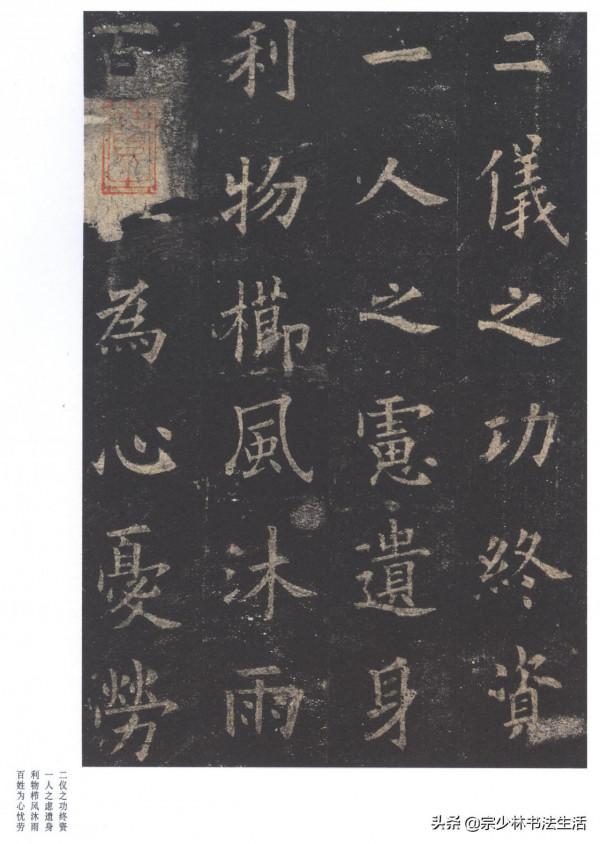 二儀之功終資
一人之慮遺身
利物櫛風沐雨
百為心憂勞
二仪之功终资
一人之虑遗身
利物栉风沐雨
百姓为心忧劳
头条 @宗少林书法生活